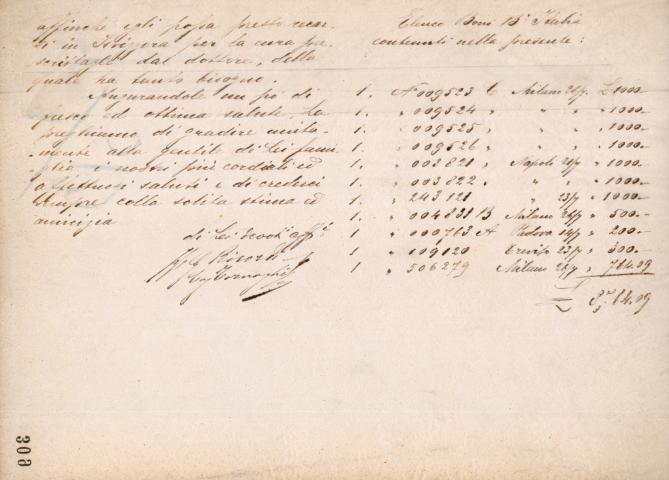 affinchè egli possa presto recar-
si in Svizzera per la cura pre
scrittagli dal dottore, della
quale ha tanto bisogno.
Augurandole un pò di
fresco ed ottima salute, La
preghiamo di gradire unita-
mente alla gentile di Lei fami
glia i nostri più cordiali ed
affettuosi saluti e di crederci
sempre colla solita stima ed
amicizia
di Lei devoti aff.i
Ricordi
Tornaghi
Elenco Boni Bª Italia
contenuti nella presente:
1. Nº 009523 C Milano 26/7 L 1000.-
1. " 009524 " " " " 1000.-
1. " 009525 " " " " 1000.-
1. " 009526 " " " " 1000.-
1. " 003821 " Napoli 20/7 " 1000.-
1. " 003822 " " " " 1000.-
1. " 243121 " 23/7 " 1000.-
1. " 004838 B Milano 26/7 " 500.-
1. " 000763 A Padova 14/7 " 200.-
1. " 109120 Treviso 23/7 " 300.-
1. " 506279 Milano 26/7 " 764.09
L 8,764.09
308